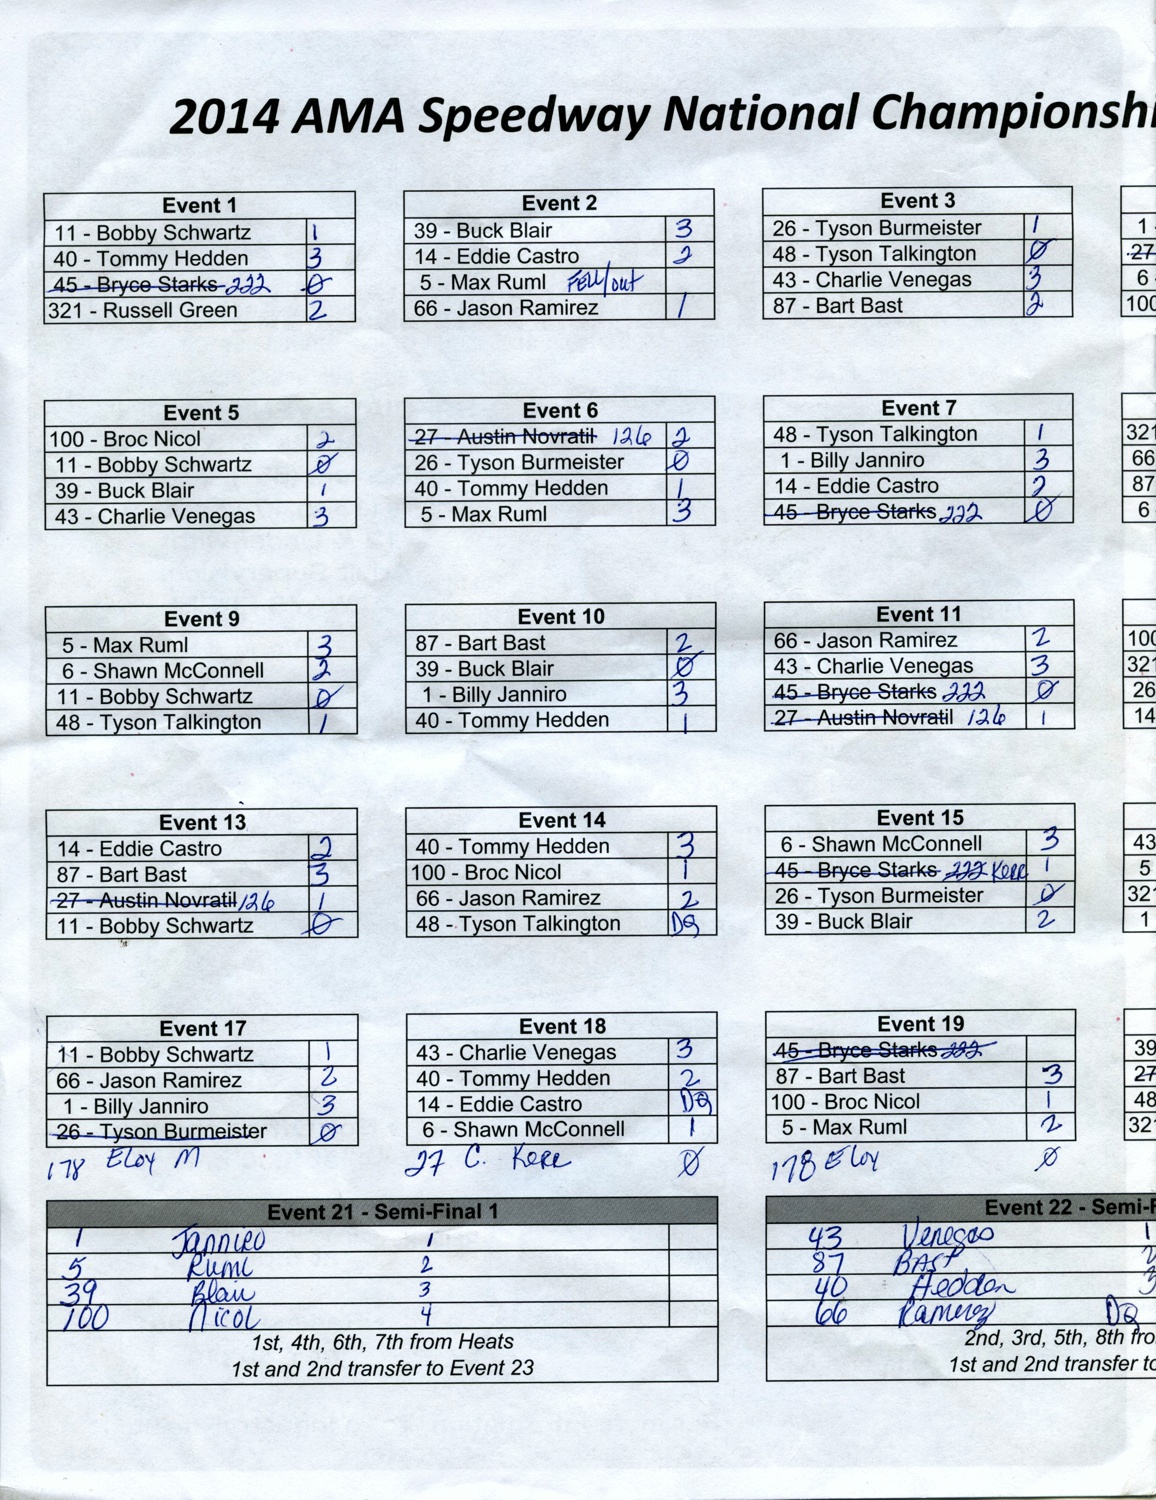 2014 AMA Speedway National Championshi
Event 1
11 - Bobby Schwartz 1
40 - Tommy Hedden 3
45 - Bryce Starks 222 0
321 - Russell Green 2
Event 2
39 - Buck Blair 3
14 - Eddie Castro 2
5 - Max Ruml FELL/out
66 - Jason Ramirez 1
Event 3
26 - Tyson Burmeister 1
48 - Tyson Talkington 0
43 - Charlie Venegas 3
87 - Bart Bast 2
1
27
6
100
Event 5
100 - Broc Nicol 2
11 - Bobby Schwartz 0
39 - Buck Blair 1
43 - Charlie Venegas 3
Event 6
27 - Austin Novratil 126 2
26 - Tyson Burmeister 0
40 - Tommy Hedden 1
5 - Max Ruml 3
Event 7
48 - Tyson Talkington 1
1 - Billy Janniro 3
14 - Eddie Castro 2
45 - Bryce Starks 222 0
321
66
87
6
Event 9
5 - Max Ruml 3
6 - Shawn McConnell 2
11 - Bobby Schwartz 0
48 - Tyson Talkington 1
Event 10
87 - Bart Bast 2
39 - Buck Blair 0
1 - Billy Janniro 3
40 - Tommy Hedden 1
Event 11
66 - Jason Ramirez 2
43 - Charlie Venegas 3
45 - Bryce Starks 222 0
27 - Austin Novratil 126 1
100
321
26
14
Event 13
14 - Eddie Castro 2
87 - Bart Bast 3
27 - Austin Novratil 126 1
11 - Bobby Schwartz 0
Event 14
40 - Tommy Hedden 3
100 - Broc Nicol 1
66 - Jason Ramirez 2
48 - Tyson Talkington DQ
Event 15
6 - Shawn McConnell 3
45 - Bryce Starks 222 Kerr 1
26 - Tyson Burmeister 0
39 - Buck Blair 2
43
5
321
1
Event 17
11 - Bobby Schwartz 1
66 - Jason Ramirez 2
1 - Billy Janniro 3
26 - Tyson Burmeister 0
178 Eloy M
Event 18
43 - Charlie Venegas 3
40 - Tommy Hedden 2
14 - Eddie Castro DQ
6 - Shawn McConnell 1
27 C. Kerr 0
Event 19
45 - Bryce Starks 222
87 - Bart Bast 3
100 - Broc Nicol 1
5 - Max Ruml 2
178 Eloy 0
39
27
48
321
Event 21 - Semi-Final 1
1 Janniro 1
5 Ruml 2
39 Blair 3
100 Nicol 4
1st, 4th, 6th, 7th from Heats
1st and 2nd transfer to Event 23
Event 22 - Semi-F
43 Venegas 1
87 BAST 2
40 Hedden 3
66 Ramirez DQ
2nd, 3rd, 5th, 8th fro
1st and 2nd transfer to